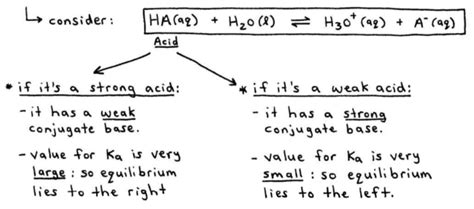 ↳ consider: HA(aq) + H₂O(l) ⇌ H₃O⁺(aq) + A⁻(aq)
Acid
* if it's a strong acid:
- it has a weak
conjugate base.
- value for Ka is very
large: so equilibrium
lies to the right
* if it's a weak acid:
- it has a strong
conjugate base.
- value for Ka is very
small: so equilibrium
lies to the left.